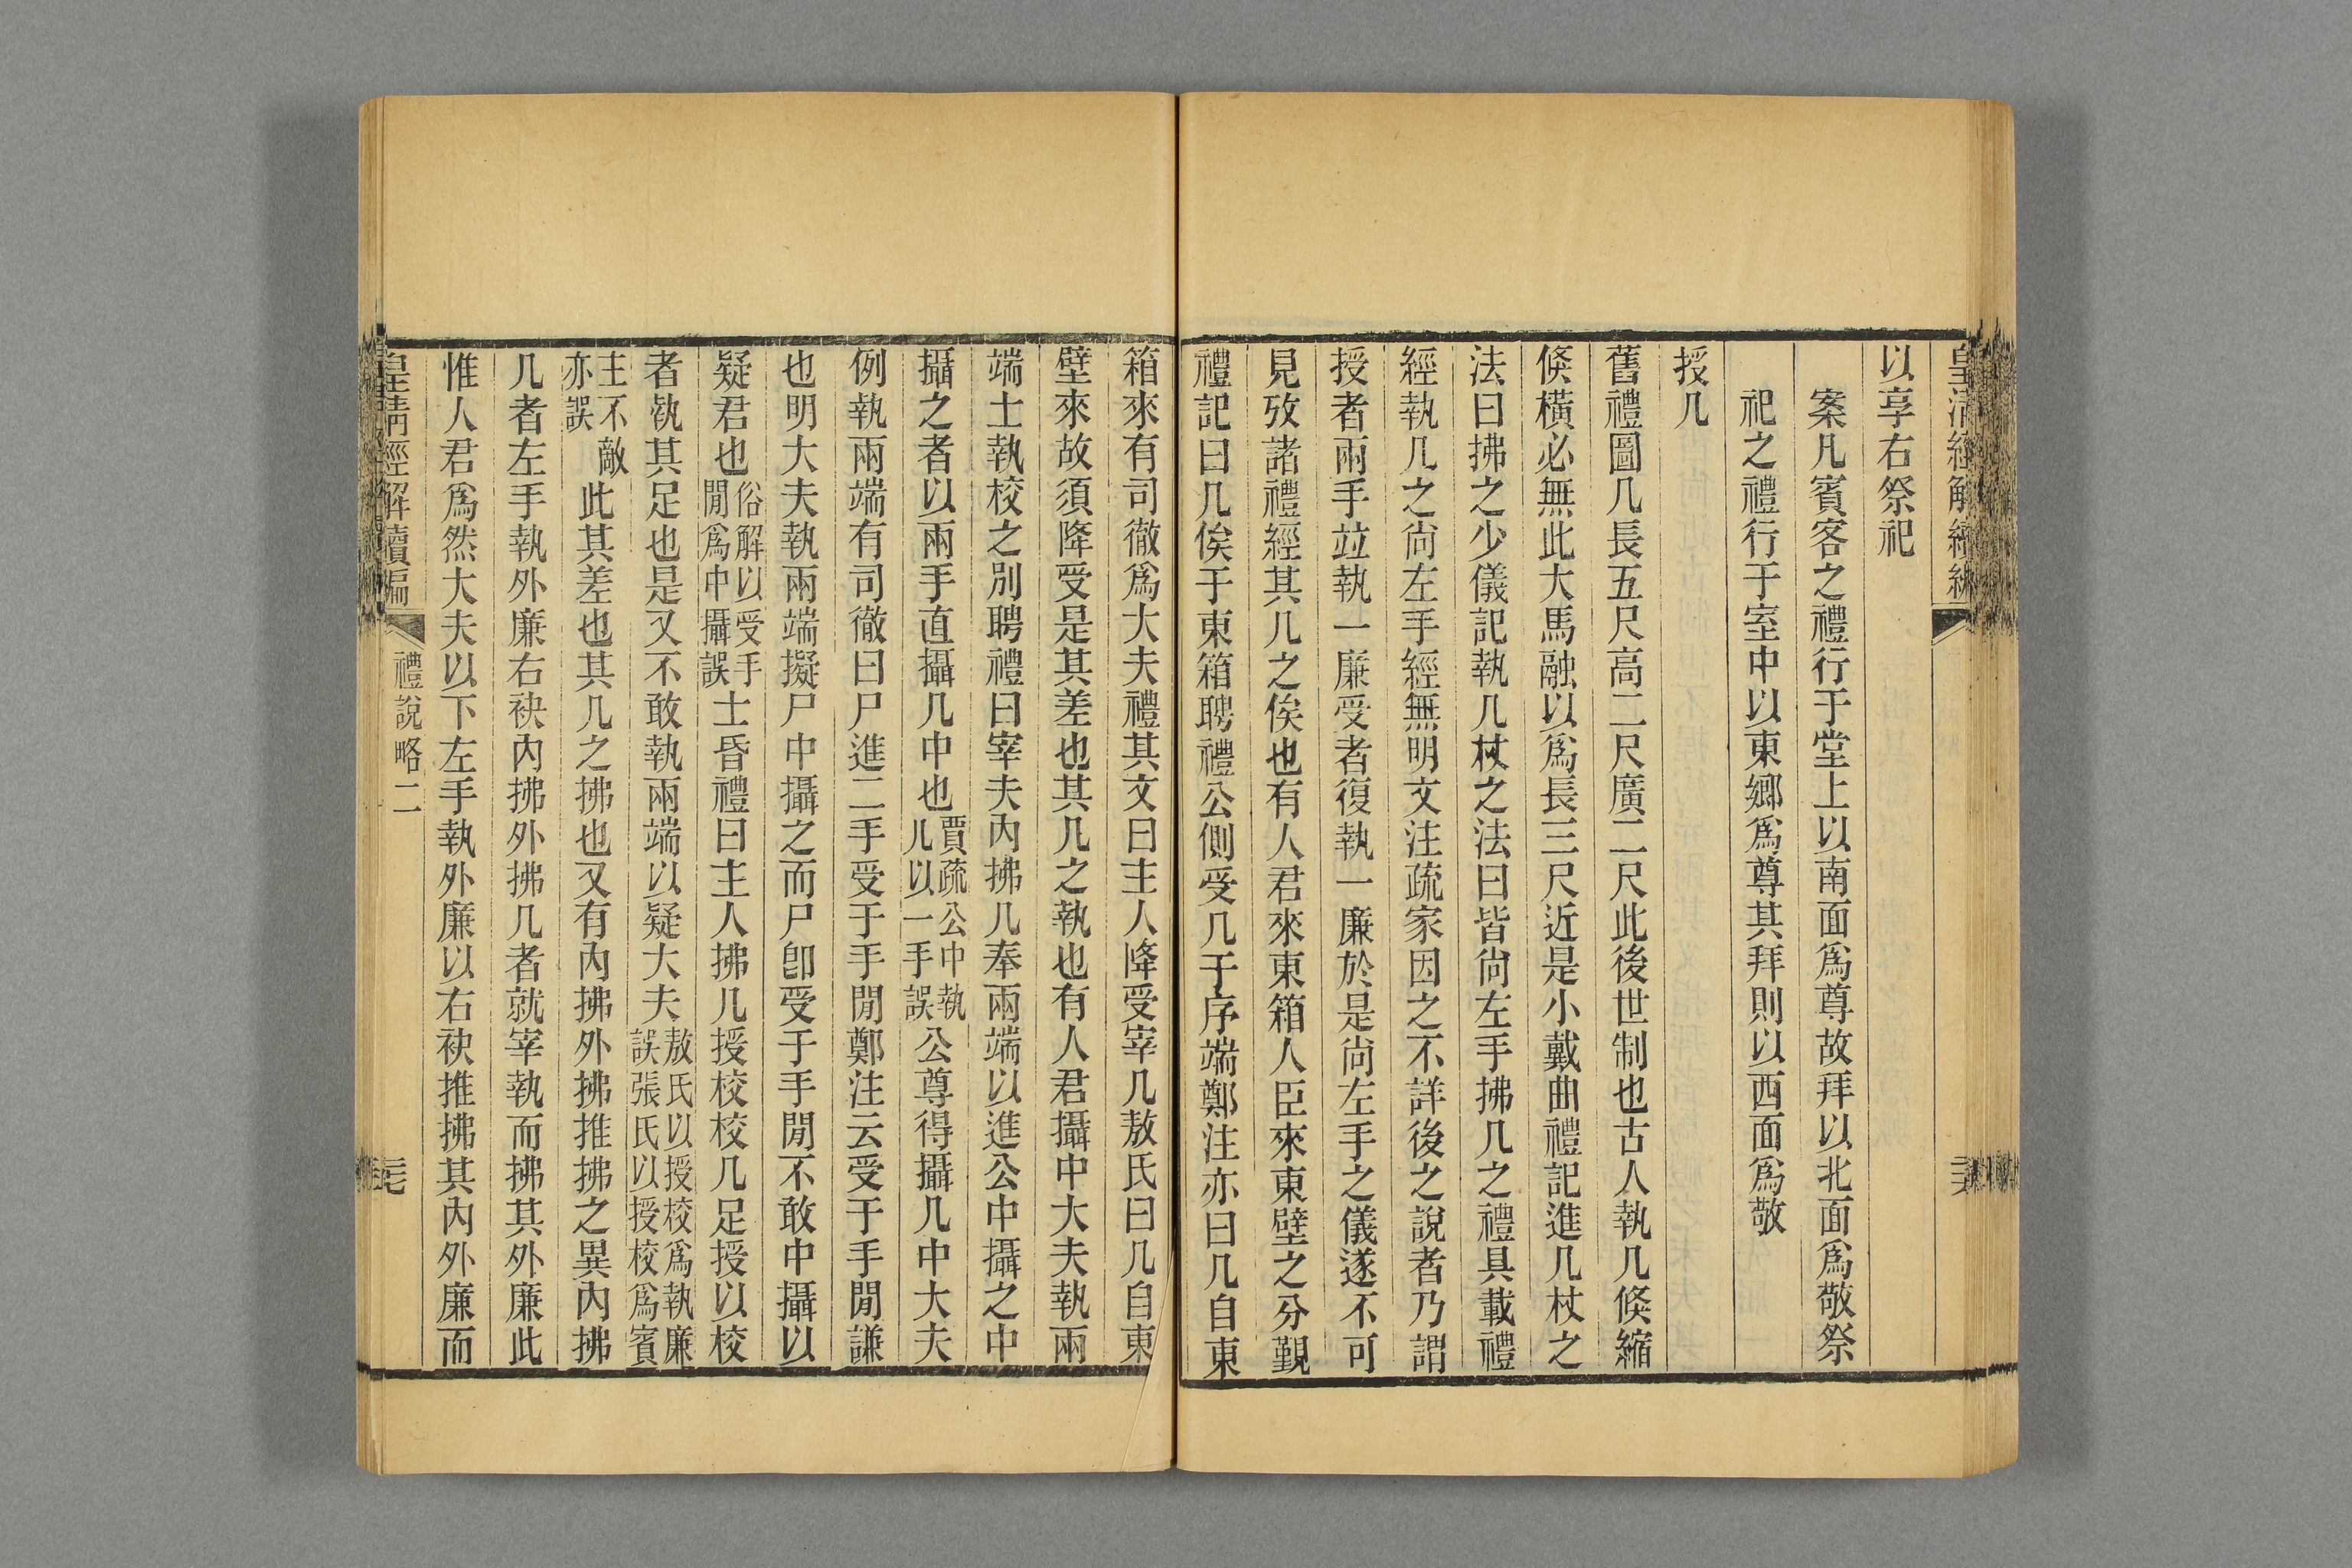 皇清經解續編
以享右祭祀
案凡賓客之禮行于堂上以南面爲尊故拜以北面爲敬祭
祀之禮行于室中以東鄉爲尊其拜則以西面爲敬
授几
舊禮圖几長五尺高二尺廣二尺此後世制也古人執几倏縮
倏橫必無此大馬融以爲長三尺近是小戴曲禮記進几杖之
法曰拂之少儀記執几杖之法曰皆尙左手拂几之禮具載禮
經執几之尙左手經無明文注疏家因之不詳後之說者乃謂
授者兩手竝執一廉受者復執一廉於是尙左手之儀遂不可
見攷諸禮經其几之俟也有人君來東箱人臣來東壁之分覲
禮記曰几俟于東箱聘禮公側受几于序端鄭注亦曰几自東
箱來有司徹爲大夫禮其文曰主人降受宰几敖氏曰几自東
壁來故須降受是其差也其几之執也有人君攝中大夫執兩
端士執校之別聘禮曰宰夫內拂几奉兩端以進公中攝之中
攝之者以兩手直攝几中也賈疏公中執几以一手誤公尊得攝几中大夫
例執兩端有司徹曰尸進二手受于手閒鄭注云受于手閒謙
也明大夫執兩端擬尸中攝之而尸卽受于手閒不敢中攝以
疑君也俗解以受手閒爲中攝誤士昏禮曰主人拂几授校校几足授以校
者執其足也是又不敢執兩端以疑大夫敖氏以授校爲執廉誤張氏以授校爲賓
主不敵亦誤此其差也其几之拂也又有內拂外拂推拂之異內拂
几者左手執外廉右袂內拂外拂几者就宰執而拂其外廉此
惟人君爲然大夫以下左手執外廉以右袂推拂其內外廉而
皇淸經解續編
禮說略二